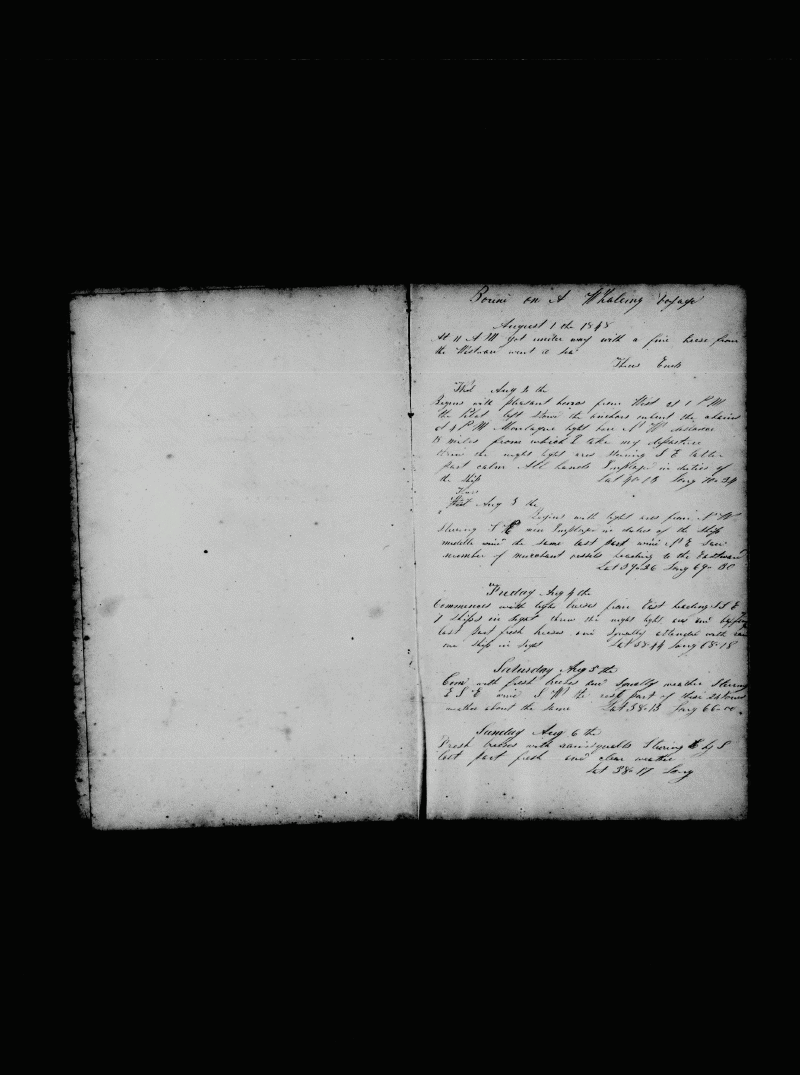 Bound on A Whaleing Voyage
August 1 the 1848
At 11 A M got under way with a fine breese from
the Westward went to sea
Thus Ends
Wed Aug 2 the
Begins with pleasant breeses from West at 1 P M
the Pilot left stowed the anchors unbent the chains
at 4 P M Montague light bore N W distance
18 miles from which I take my departure
the night light airs stearing S E latter
part calm All hands Employd in duties of
the ship Lat 40-18 Long 70-34
Thur
Aug 3 the
Begins with light airs from N W
Stearing S E men Employd in duties of the ship
middle wind the same last part wind N E Saw
number of merchant vessels heading to the Eastward
Lat 39-36 Long 69-30
Friday Aug 4 the
Commences with light breeses from East heading S S E
7 ships in sight threw the night light airs and baffling
last part fresh breeses and squally attended with rain
one ship in sight Lat 38-44 Long 68-18
Saturday Aug 5 the
Com with fresh breeses and squally weather Stearing
E S E wind S W the rest part of these 24 hours
weather about the same Lat 38-13 Long 66-00
Sunday Aug 6 the
Fresh breeses with rain squalls Stearing E by S
last part fresh and clear weather
Lat 38-17 Long